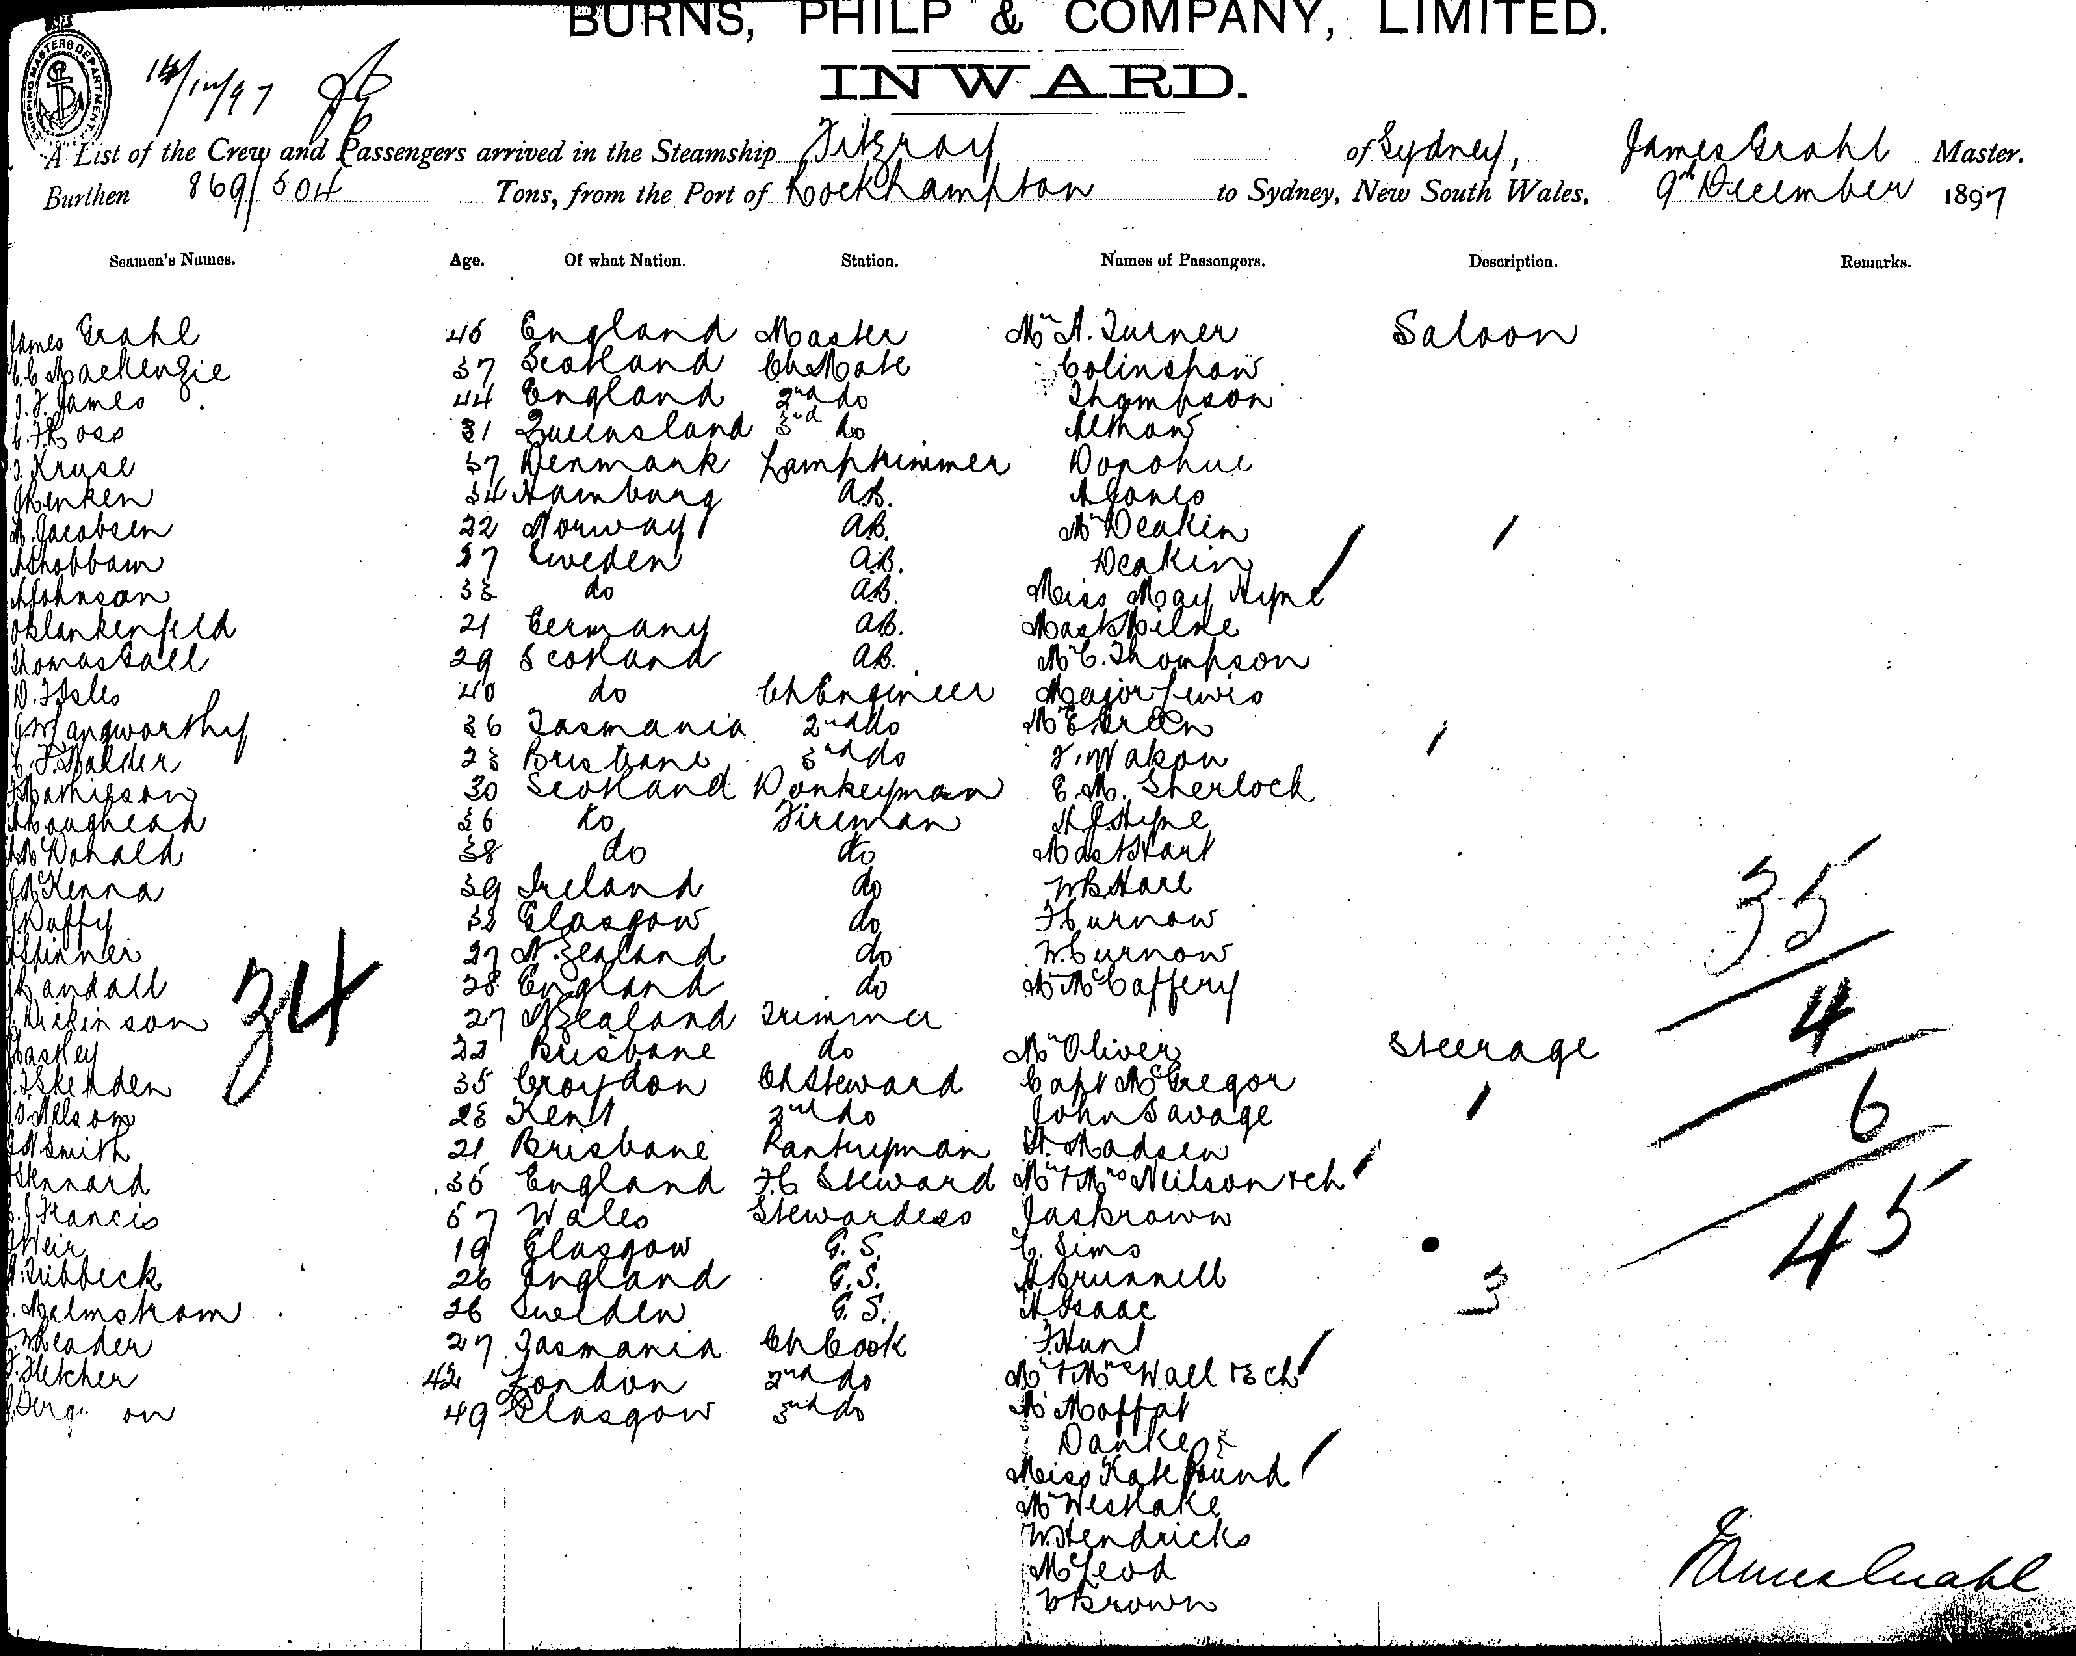 BURNS, PHILP & COMPANY, LIMITED.
INWARD.
SHIPPING MASTERS DEPARTMENT
A List of the Crew and Passengers arrived in the Steamship Fitzroy of Sydney, James Grahl Master.
Burthen 869/504 Tons, from the Port of Rockhampton to Sydney, New South Wales, 9th December 1897
Seamen's Names. Age. Of what Nation. Station. Names of Passengers. Description. Remarks.
James Grahl 45 England Master Mr A. Turner Saloon
Mackenzie 37 Scotland Ch Mate Colinshaw
James 44 England 2nd do Thompson
Ross 31 Queensland 3rd do
Kruse 37 Denmark Lamptrimmer Donohue
Renken 34 Hamburg A.B. A Jones
Jacobsen 22 Norway A.B. Mr Deakin
37 Sweden A.B. Deakin
A Johnson 33 do A.B. Miss May Hyne
Blankenfeld 21 Germany A.B. Mast Milne
Thomas Gall 29 Scotland A.B. Mr C. Thompson
D. Isles 40 do Ch Engineer Major Lewis
Langworthy 36 Tasmania 2nd do Mr
23 Brisbane 3rd do
Mathieson 30 Scotland Donkeyman E.M. Sherlock
Loughead 36 do Fireman H J Hyne
McDonald 38 do do Mast Hart
McKenna 39 Ireland do W B Hare
Duffy 32 Glasgow do F Curnow
Skinner 27 N. Zealand do W Curnow
Randall 28 England do Mr McCaffery
Dickinson 27 N Zealand Trimmer
34
22 Brisbane do Mr Oliver Steerage
35 Croydon Ch Steward Capt McGregor
Nelson 28 Kent 2nd do John Savage
Smith 21 Brisbane Pantryman H. Madsen
Kennard 35 England F.C. Steward Mr & Mrs Neilson & ch
Francis 57 Wales Stewardess Jas Brown
Weir 19 Glasgow G.S. C. Sims
Tribbeck 26 England G.S. A Brunnell
Malmstrom 26 Sweden G.S. A Isaac
Meader 27 Tasmania Ch Cook F. Hunt
Fletcher 42 London 2nd do Mr & Mrs Wall & 3 ch
49 Glasgow 3rd do Mr Moffat
Danker
Miss Kate Pound
Mr Westlake
W. Hendricks
McLeod
Brown
35
4
6
45
3
James Grahl